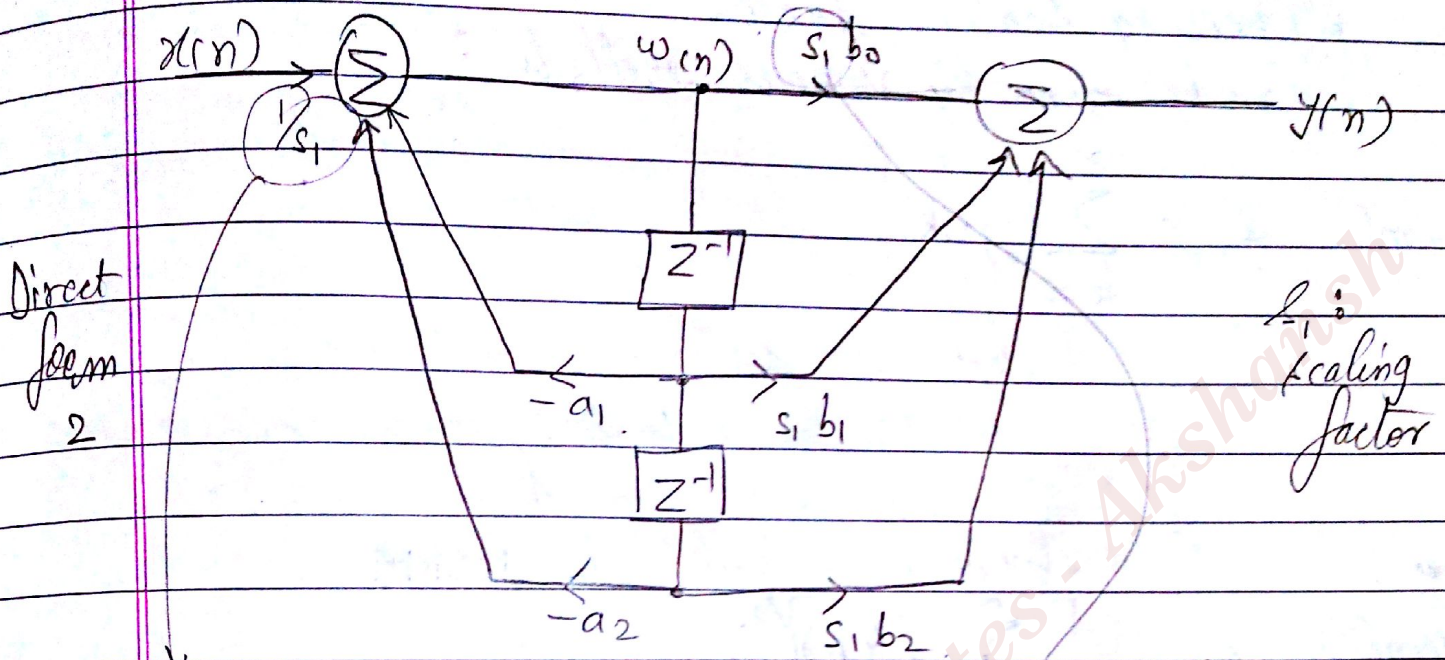 x(n) Σ w(n) s₁ b₀ Σ y(n)
1/s₁
z⁻¹
Direct
form
2
s₁ :
scaling
factor
-a₁ s₁ b₁
z⁻¹
-a₂ s₁ b₂
- Akshansh